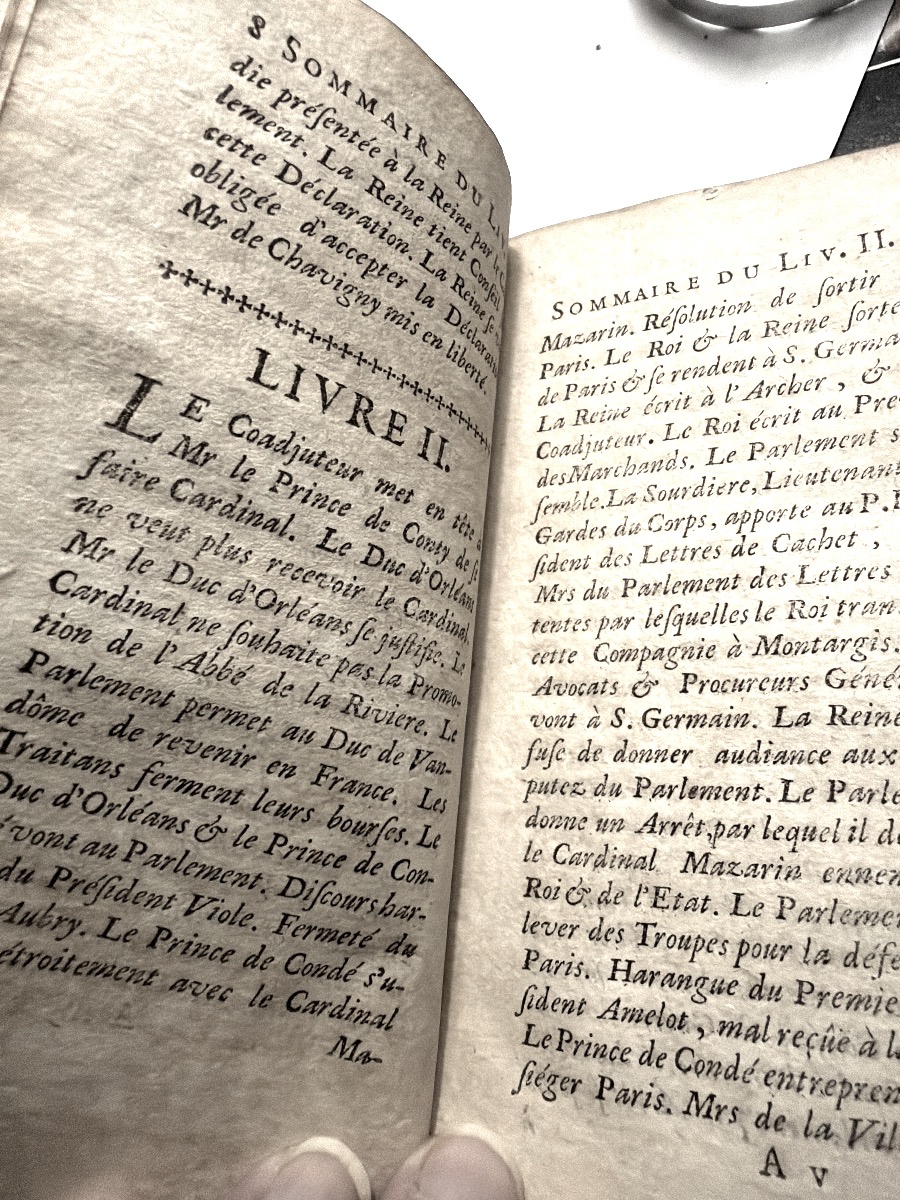 8 SOMMAIRE DU
die préſentée à la Reine par
lement. La Reine tient Conſeil
cette Déclaration. La Reine ſe
obligée d'accepter la
Mr de Chavigny mis en liberté.
LIVRE II.
LE Coadjuteur met en tête
Mr le Prince de Conty de
faire Cardinal. Le Duc d'Orléans
ne veut plus recevoir le Cardinal.
Mr le Duc d'Orléans ſe juſtifie. Le
Cardinal ne ſouhaite pas la Promo-
tion de l'Abbé de la Riviere. Le
Parlement permet au Duc de Van-
dôme de revenir en France. Les
Traitans ferment leurs bourſes. Le
Duc d'Orléans & le Prince de Con-
vont au Parlement. Diſcours har-
du Préſident Viole. Fermeté du
Aubry. Le Prince de Condé s'u-
étroitement avec le Cardinal
Ma-
SOMMAIRE DU LIV. II.
Mazarin. Réſolution de ſortir
Paris. Le Roi & la Reine
de Paris & ſe rendent à S.
La Reine écrit à l'Archer, &
Coadjuteur. Le Roi écrit au
des Marchands. Le Parlement
ſemble. La Sourdiere, Lieutenant
Gardes du Corps, apporte au P.
ſident des Lettres de Cachet,
Mrs du Parlement des Lettres
tentes par leſquelles le Roi
cette Compagnie à Montargis.
Avocats & Procureurs
vont à S. Germain. La Reine
fuſe de donner audiance aux
putez du Parlement. Le
donne un Arrêt, par lequel il
le Cardinal Mazarin
Roi & de l'Etat. Le
lever des Troupes pour la
Paris. Harangue du
ſident Amelot, mal reçûe à
Le Prince de Condé
ſiéger Paris. Mrs de la
A v